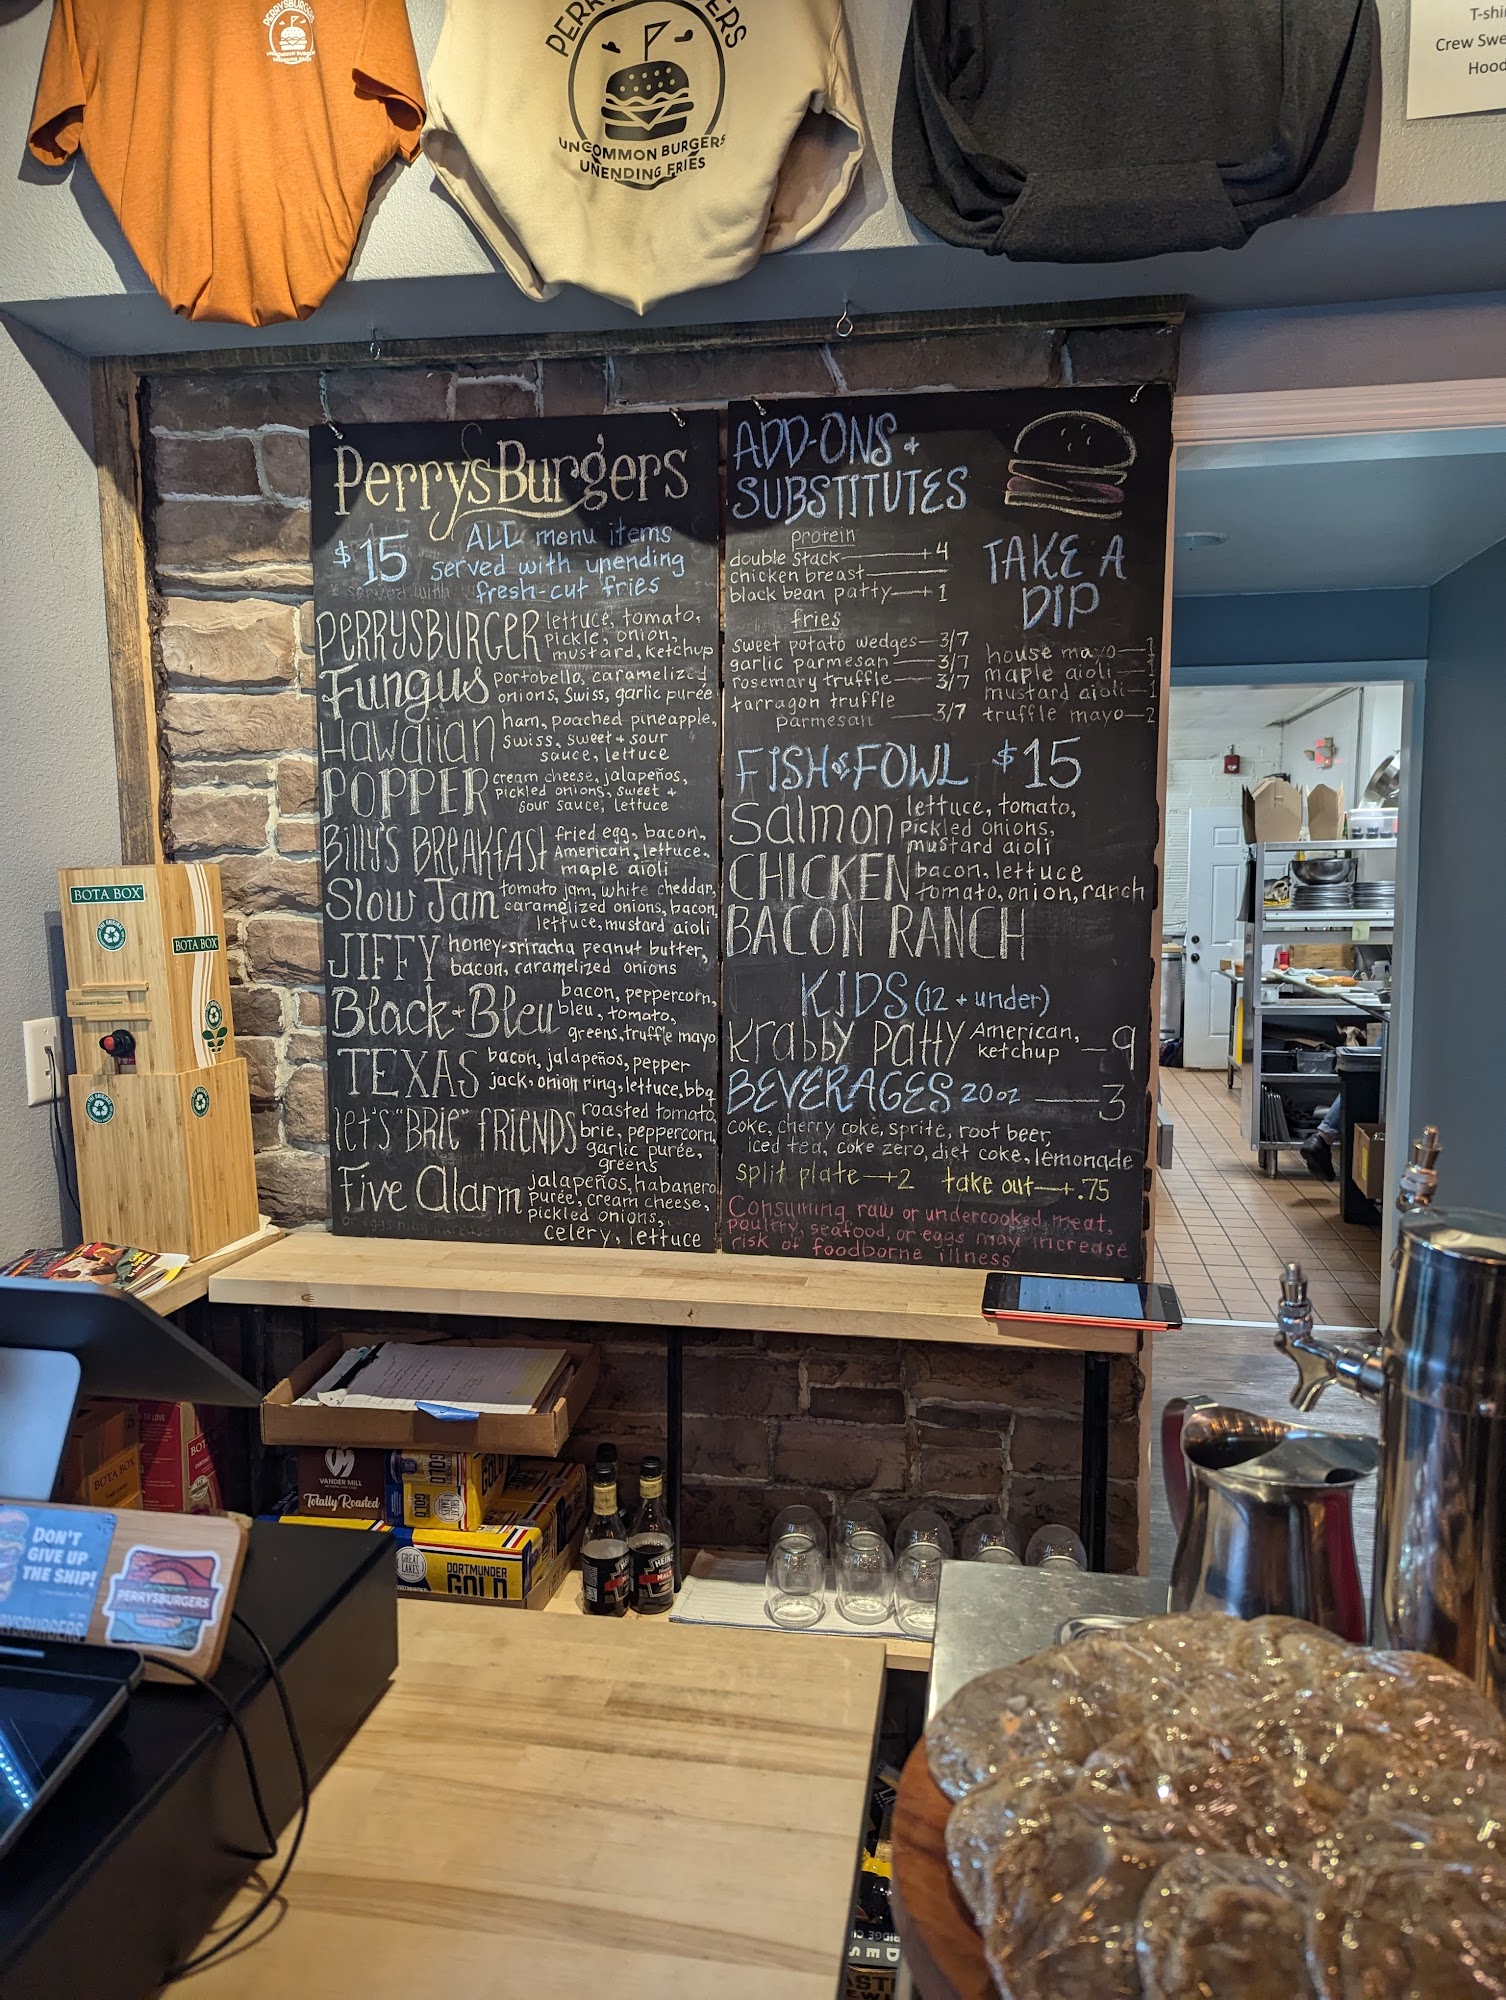 PERRYSBURGERS
UNCOMMON BURGERS
UNENDING FRIES
UNCOMMON BURGERS
UNENDING FRIES
Crew
PerrysBurgers
$15 ALL menu items
served with unending
fresh-cut fries
served with
PERRYSBURGER lettuce, tomato,
pickle, onion,
mustard, ketchup
Fungus portobello, caramelized
onions, Swiss, garlic purée
Hawaiian ham, poached pineapple,
swiss, sweet + sour
sauce, lettuce
POPPER cream cheese, jalapeños,
pickled onions, sweet +
sour sauce, lettuce
Billy's Breakfast fried egg, bacon,
American, lettuce,
maple aioli
Slow Jam tomato jam, white cheddar,
caramelized onions, bacon,
lettuce, mustard aioli
JIFFY honey-sriracha peanut butter,
bacon, caramelized onions
Black + Bleu bacon, peppercorn,
bleu, tomato,
greens, truffle mayo
TEXAS bacon, jalapeños, pepper
jack, onion ring, lettuce, bbq
let's "BRIE" fRIENDS roasted tomato,
brie, peppercorn,
garlic purée,
greens
Five Alarm jalapeños, habanero
purée, cream cheese,
pickled onions,
celery, lettuce
ADD-ONS +
SUBSTITUTES
protein
double stack +4
chicken breast
black bean patty + 1
fries
sweet potato wedges 3/7
garlic parmesan 3/7
rosemary truffle 3/7
tarragon truffle
parmesan 3/7
TAKE A
DIP
house mayo 1
maple aioli 1
mustard aioli 1
truffle mayo 2
FISH or FOWL $15
Salmon lettuce, tomato,
pickled onions,
mustard aioli
CHICKEN bacon, lettuce
tomato, onion, ranch
BACON RANCH
KIDS (12 + under)
Krabby Patty American,
ketchup 9
BEVERAGES 20oz 3
coke, cherry coke, sprite, root beer,
iced tea, coke zero, diet coke, lemonade
split plate +2 take out +.75
Consuming raw or undercooked meat,
poultry, seafood, or eggs may increase
risk of foodborne illness
BOTA BOX
BOTA BOX
CABERNET SAUVIGNON
BOTA BOX
VANDER MILL
Totally Roasted
GOLD
GREAT LAKES
DORTMUNDER
GOLD
HEINZ
MALT
DON'T
GIVE UP
THE SHIP!
PERRYSBURGERS